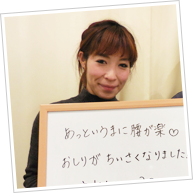 あっというまに腰が楽♡
おしりが ちいさくなりました。